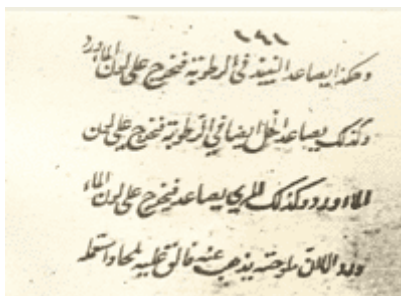 ١٤١
وهكذا يصاعد النبيذ في الرطوبة فيخرج على لون الماورد
وكذلك يصاعد الخل ايضا في الرطوبة فيخرج على لون
الماء ورد وكذلك المري يصاعد فيخرج على لون الماء
ورد الا ان ملوحته يذهب عنه فالق عليه ملحا واستعمله